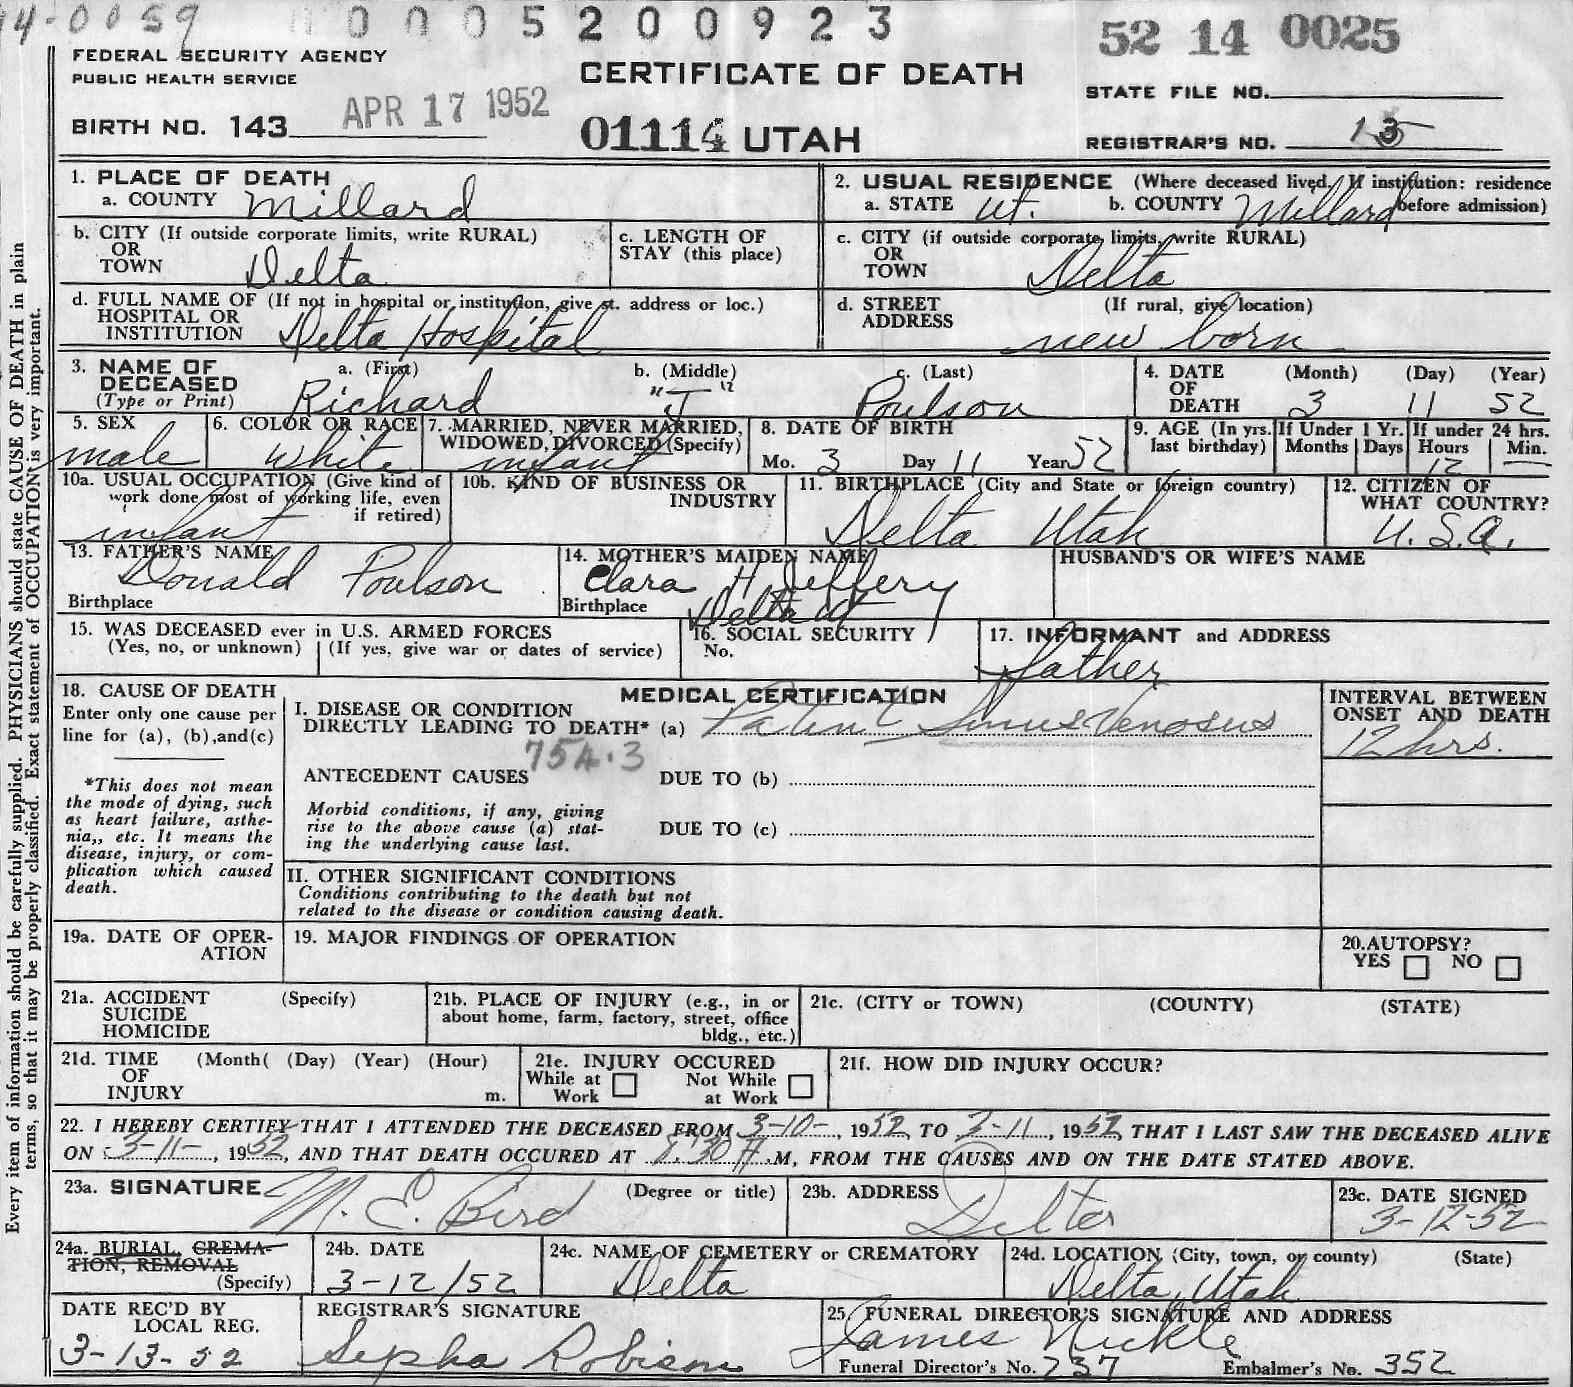 14-0059 0005200923 52 14 0025
FEDERAL SECURITY AGENCY
PUBLIC HEALTH SERVICE
CERTIFICATE OF DEATH
STATE FILE NO.
BIRTH NO. 143 APR 17 1952
01114 UTAH
REGISTRAR'S NO. 15
1. PLACE OF DEATH
a. COUNTY Millard
2. USUAL RESIDENCE (Where deceased lived. If institution: residence before admission)
a. STATE Ut. b. COUNTY Millard
b. CITY (If outside corporate limits, write RURAL)
OR
TOWN Delta
c. LENGTH OF
STAY (this place)
c. CITY (if outside corporate limits, write RURAL)
OR
TOWN Delta
d. FULL NAME OF (If not in hospital or institution, give st. address or loc.)
HOSPITAL OR
INSTITUTION Delta Hospital
d. STREET (If rural, give location)
ADDRESS new born
3. NAME OF
DECEASED
(Type or Print)
a. (First) b. (Middle) c. (Last)
Richard "J" Poulson
4. DATE (Month) (Day) (Year)
OF
DEATH 3 11 52
5. SEX
male
6. COLOR OR RACE
white
7. MARRIED, NEVER MARRIED,
WIDOWED, DIVORCED (Specify)
infant
8. DATE OF BIRTH
Mo. 3 Day 11 Year 52
9. AGE (In yrs.
last birthday)
If Under 1 Yr.
Months Days
If under 24 hrs.
Hours Min.
12 —
10a. USUAL OCCUPATION (Give kind of
work done most of working life, even
if retired)
infant
10b. KIND OF BUSINESS OR
INDUSTRY
11. BIRTHPLACE (City and State or foreign country)
Delta Utah
12. CITIZEN OF
WHAT COUNTRY?
U.S.A.
13. FATHER'S NAME
Donald Poulson
Birthplace
14. MOTHER'S MAIDEN NAME
Clara H Jeffery
Birthplace Delta Ut
HUSBAND'S OR WIFE'S NAME
15. WAS DECEASED ever in U.S. ARMED FORCES
(Yes, no, or unknown) (If yes, give war or dates of service)
16. SOCIAL SECURITY
No.
17. INFORMANT and ADDRESS
father
18. CAUSE OF DEATH
Enter only one cause per
line for (a), (b),and(c)
*This does not mean
the mode of dying, such
as heart failure, asthe-
nia,, etc. It means the
disease, injury, or com-
plication which caused
death.
MEDICAL CERTIFICATION
I. DISEASE OR CONDITION
DIRECTLY LEADING TO DEATH* (a) Patent Sinus Venosus
754.3
ANTECEDENT CAUSES DUE TO (b)
Morbid conditions, if any, giving
rise to the above cause (a) stat-
ing the underlying cause last.
DUE TO (c)
INTERVAL BETWEEN
ONSET AND DEATH
12 hrs.
II. OTHER SIGNIFICANT CONDITIONS
Conditions contributing to the death but not
related to the disease or condition causing death.
19a. DATE OF OPER-
ATION
19. MAJOR FINDINGS OF OPERATION
20.AUTOPSY?
YES NO
21a. ACCIDENT (Specify)
SUICIDE
HOMICIDE
21b. PLACE OF INJURY (e.g., in or
about home, farm, factory, street, office
bldg., etc.)
21c. (CITY or TOWN) (COUNTY) (STATE)
21d. TIME (Month( (Day) (Year) (Hour)
OF
INJURY m.
21e. INJURY OCCURED
While at Work Not While at Work
21f. HOW DID INJURY OCCUR?
22. I HEREBY CERTIFY THAT I ATTENDED THE DECEASED FROM 3-10-, 1952 TO 3-11, 1952 THAT I LAST SAW THE DECEASED ALIVE
ON 3-11-, 1952, AND THAT DEATH OCCURED AT 8:30 A.M, FROM THE CAUSES AND ON THE DATE STATED ABOVE.
23a. SIGNATURE (Degree or title)
M. E. Bird
23b. ADDRESS
Delta
23c. DATE SIGNED
3-12-52
24a. BURIAL, CREMA-
TION, REMOVAL
(Specify)
24b. DATE
3-12/52
24c. NAME OF CEMETERY or CREMATORY
Delta
24d. LOCATION (City, town, or county) (State)
Delta, Utah
DATE REC'D BY
LOCAL REG.
3-13-52
REGISTRAR'S SIGNATURE
Sepha Robison
25. FUNERAL DIRECTOR'S SIGNATURE AND ADDRESS
James Nickle
Funeral Director's No. 237 Embalmer's No. 352
Every item of information should be carefully supplied. PHYSICIANS should state CAUSE OF DEATH in plain
terms, so that it may be properly classified. Exact statement of OCCUPATION is very important.